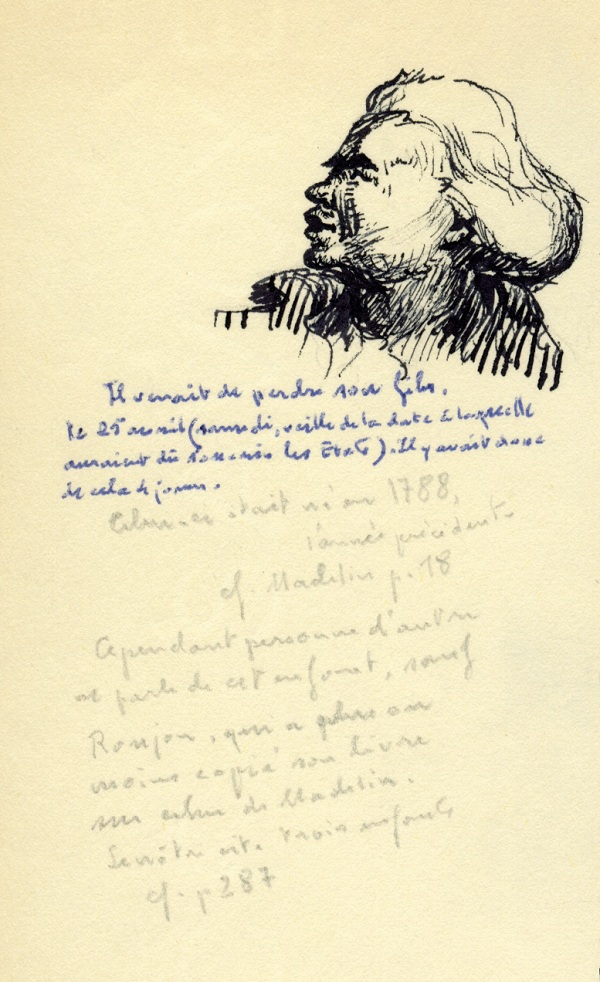 Il venait de perdre son fils,
le 25 avril (samedi, veille de la date à laquelle
auraient dû s'ouvrir les Etats). Il y avait donc
de cela jours.
Celui-ci était né en 1788,
l'année précédente
cf. Madelin p. 18
Cependant personne d'autre
ne parle de cet enfant, sauf
Roujon, qui a plus ou
moins copié son livre
sur celui de Madelin.
Lenôtre cite trois enfants
cf. p 287